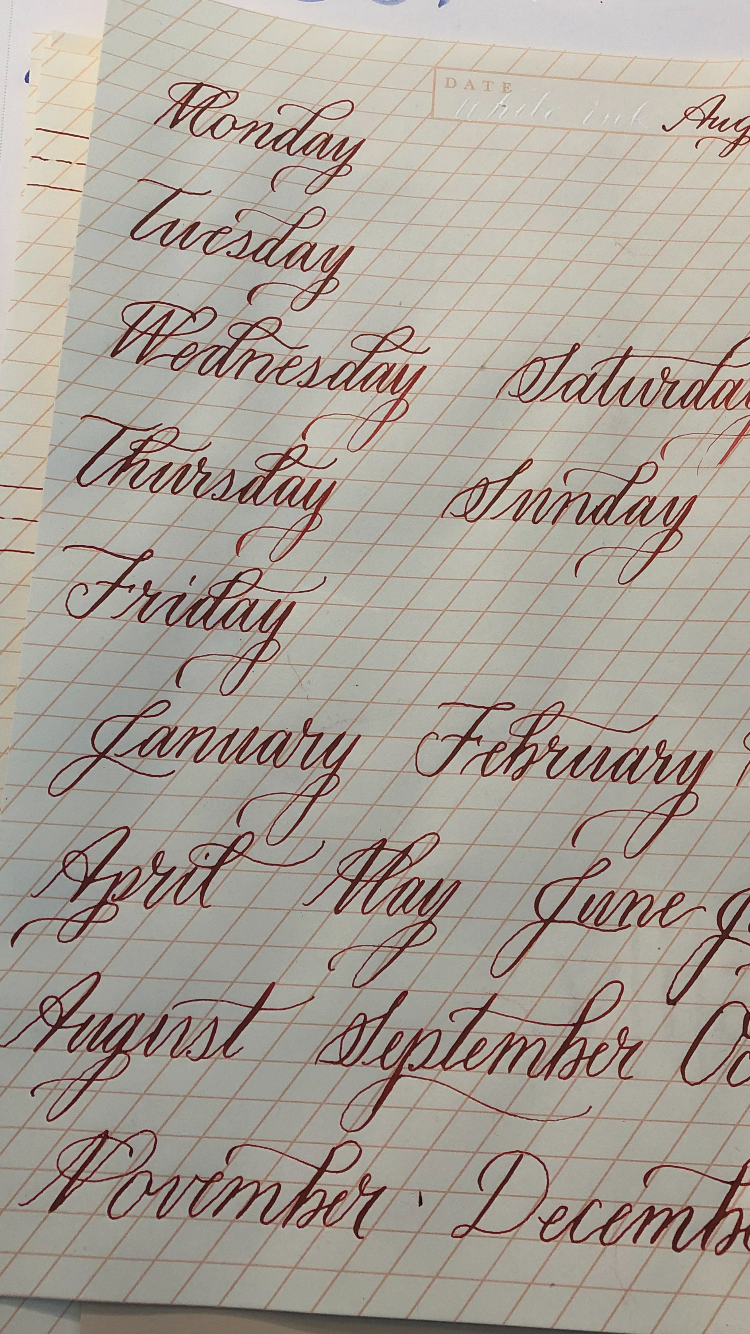 DATE
White ink Aug
Monday
Tuesday
Wednesday Saturday
Thursday Sunday
Friday
January February
April May June
August September
November Decemb